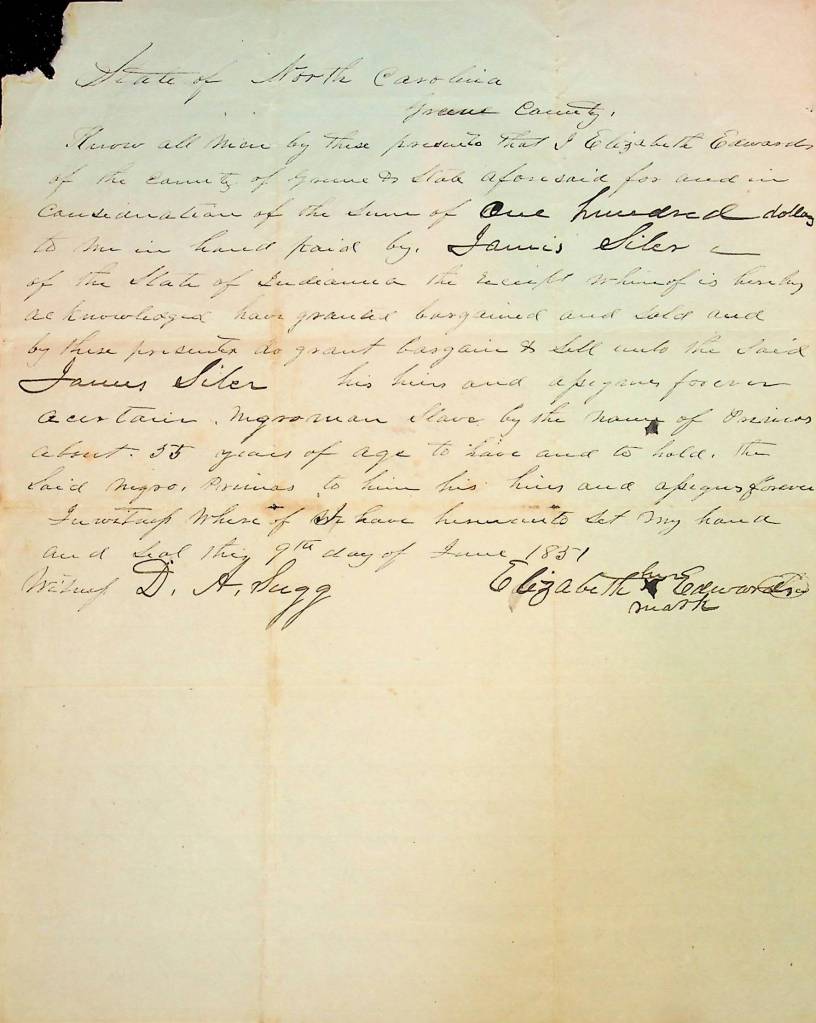 State of North Carolina
Greene County.
Know all men by these presents that I Elizabeth Edwards
of the County of Greene & State aforesaid for and in
Consideration of the Sum of One hundred dollars
to me in hand paid by. James Siler
of the State of Indianna the receipt whereof is hereby
acknowledged have granted bargained and sold and
by these presents do grant bargain & Sell unto the Said
James Siler his heirs and assigns forever
a certain. Negro man Slave by the name of Primas
about. 55 years of age to have and to hold. the
Said Negro. Primas to him his heirs and assigns forever
In witness where of I have hereunto Set my hand
and Seal this 9th day of June 1851
Witness D. A. Sugg Elizabeth her X Edwards
mark